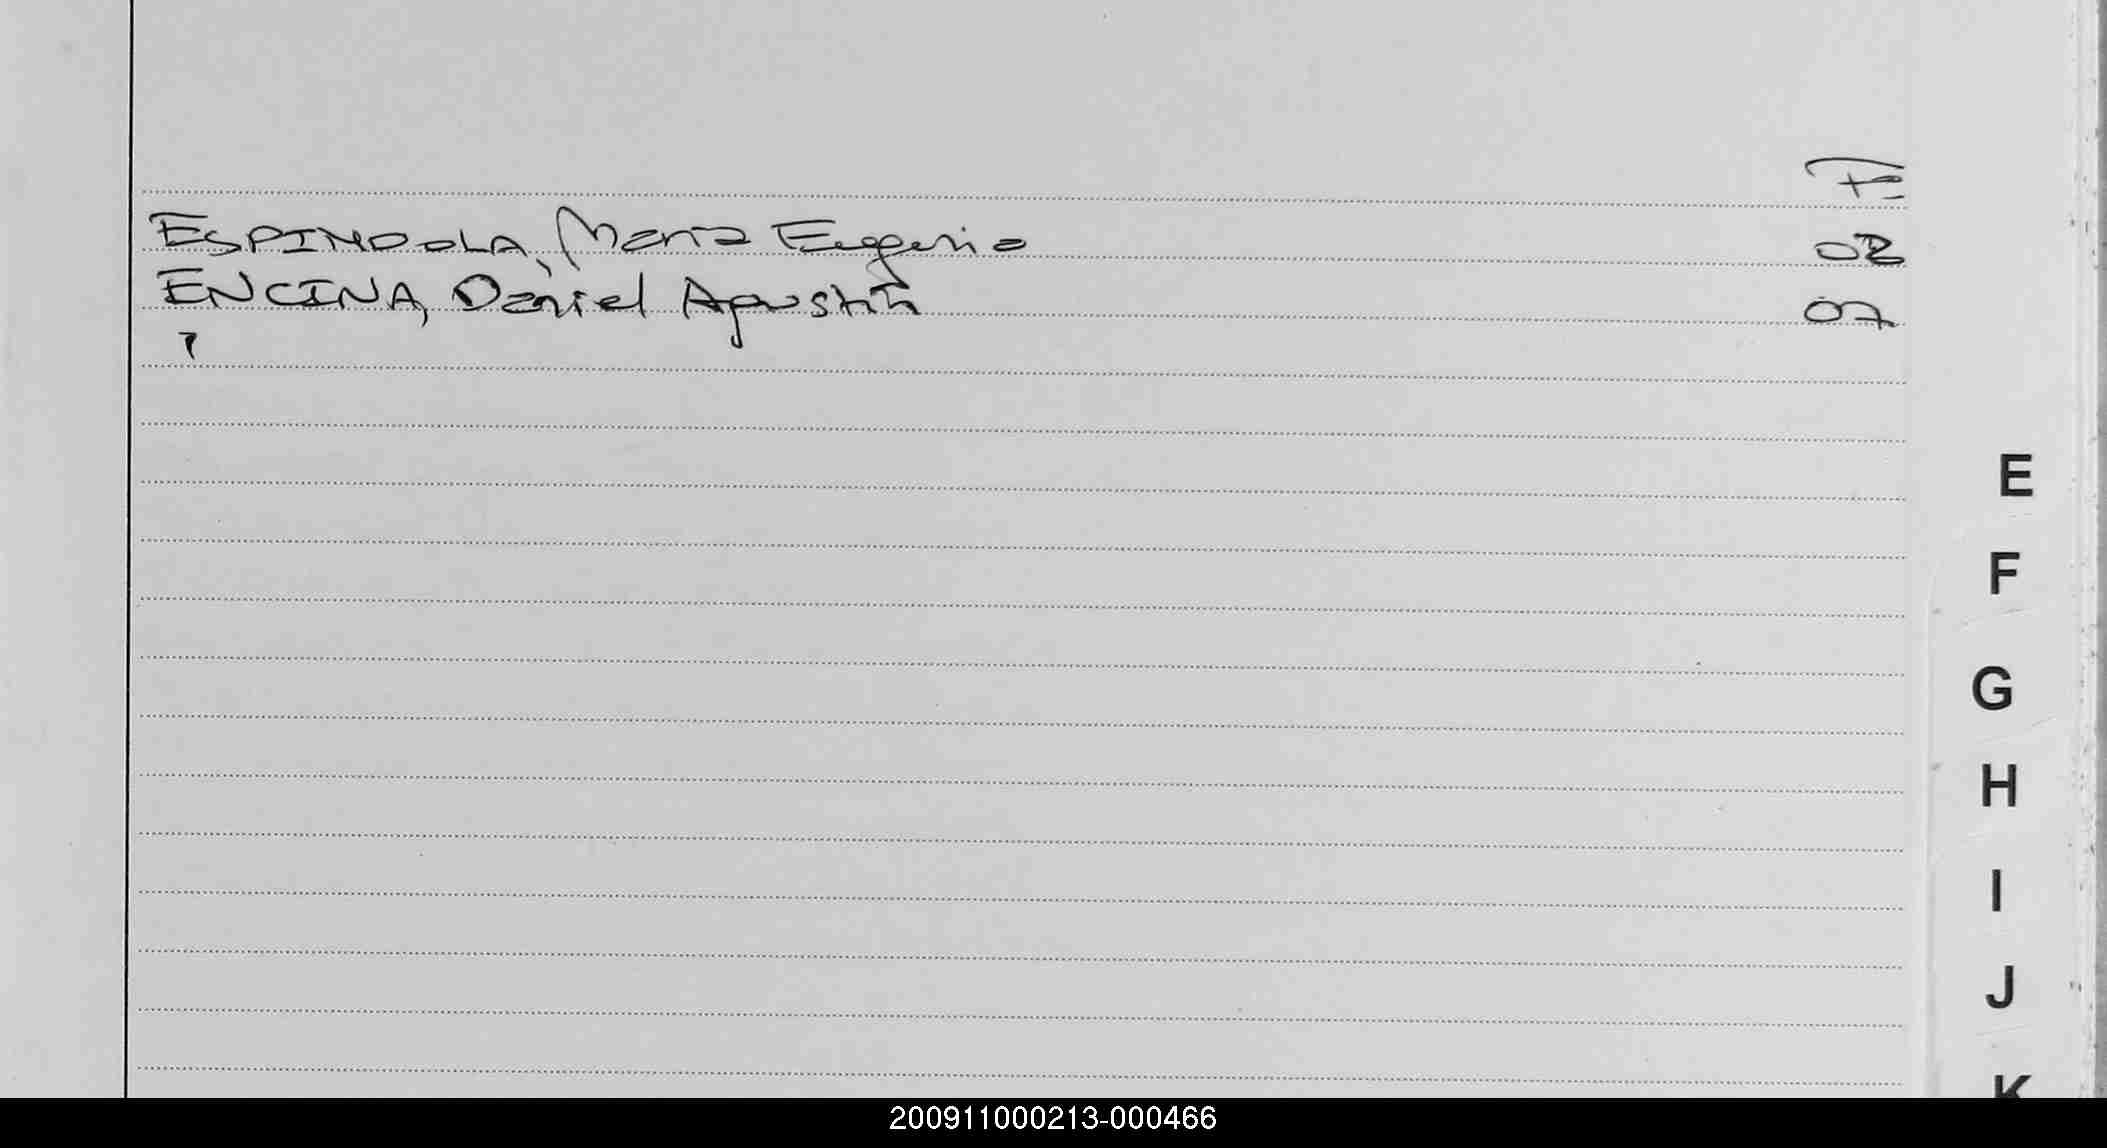 Fº
ESPINDOLA, Maria Eugenia 02
ENCINA, Daniel Agustin 07
E
F
G
H
I
J
K
200911000213-000466